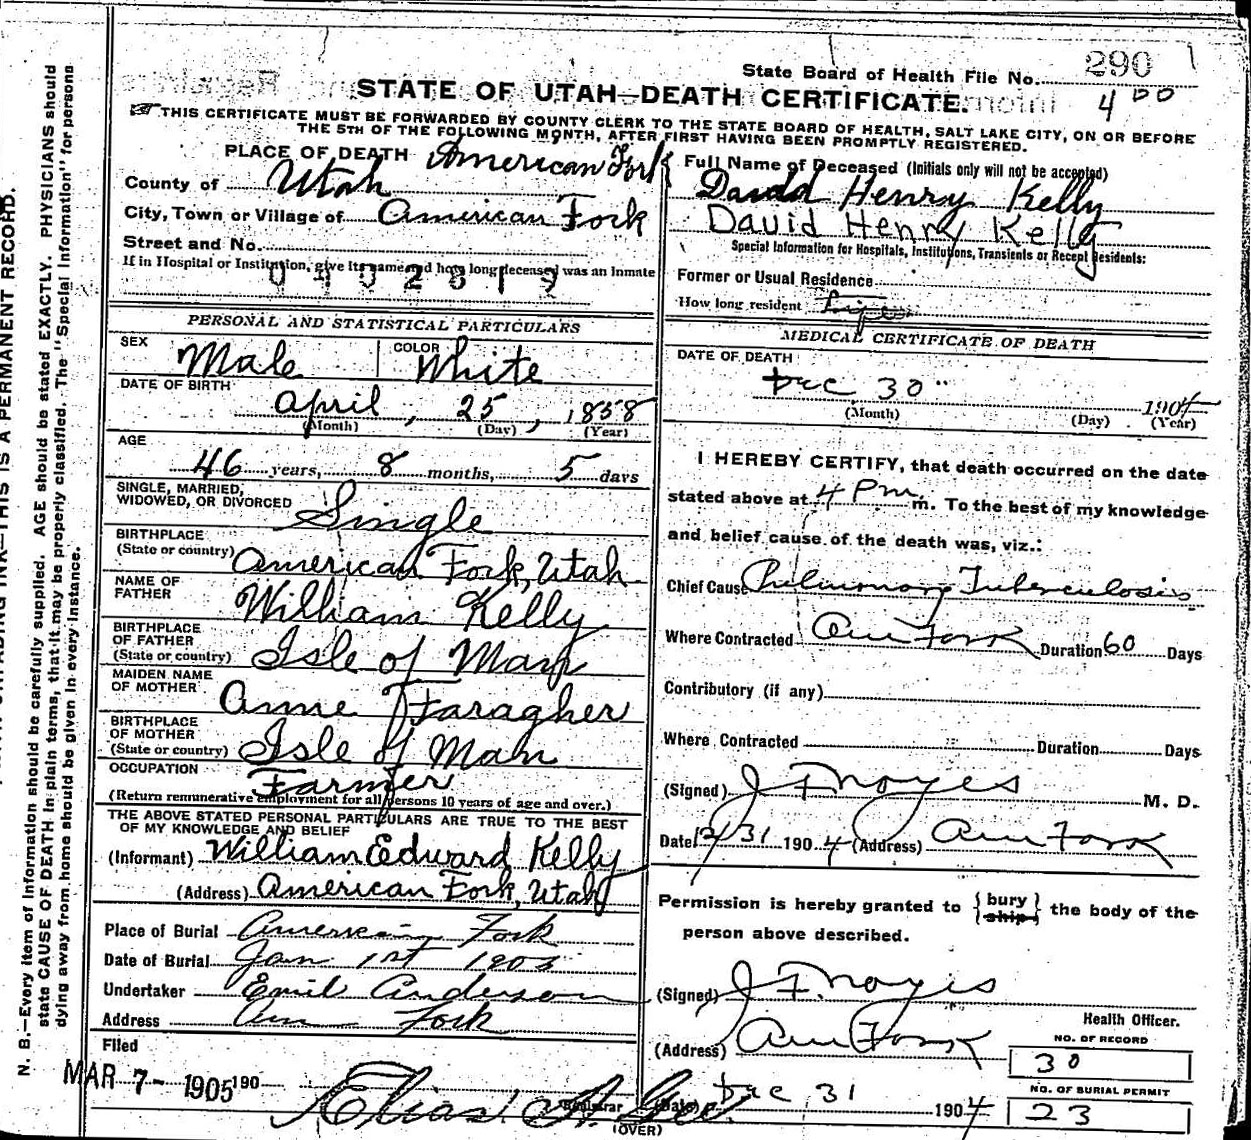 290
State Board of Health File No.
400
STATE OF UTAH—DEATH CERTIFICATE.
THIS CERTIFICATE MUST BE FORWARDED BY COUNTY CLERK TO THE STATE BOARD OF HEALTH, SALT LAKE CITY, ON OR BEFORE
THE 5TH OF THE FOLLOWING MONTH, AFTER FIRST HAVING BEEN PROMPTLY REGISTERED.
PLACE OF DEATH American Fork
County of Utah
City, Town or Village of American Fork
Street and No.
If in Hospital or Institution, give its name and how long deceased was an Inmate
PERSONAL AND STATISTICAL PARTICULARS
SEX Male COLOR White
DATE OF BIRTH
April, 25, 1858
(Month) (Day) (Year)
AGE
46 years, 8 months, 5 days
SINGLE, MARRIED,
WIDOWED, OR DIVORCED Single
BIRTHPLACE
(State or country) American Fork, Utah
NAME OF
FATHER William Kelly
BIRTHPLACE
OF FATHER
(State or country) Isle of Man
MAIDEN NAME
OF MOTHER Anne Faragher
BIRTHPLACE
OF MOTHER
(State or country) Isle of Man
OCCUPATION Farmer
(Return remunerative employment for all persons 10 years of age and over.)
THE ABOVE STATED PERSONAL PARTICULARS ARE TRUE TO THE BEST
OF MY KNOWLEDGE AND BELIEF
(Informant) William Edward Kelly
(Address) American Fork, Utah
Place of Burial American Fork
Date of Burial Jan 1st 1905
Undertaker Emil Anderson
Address Am Fork
Filed
MAR 7- 1905 190
Registrar
(OVER)
Full Name of Deceased (Initials only will not be accepted)
David Henry Kelly
David Henry Kelly
Special Information for Hospitals, Institutions, Transients or Recent Residents:
Former or Usual Residence
How long resident
MEDICAL CERTIFICATE OF DEATH
DATE OF DEATH
Dec 30" 1904
(Month) (Day) (Year)
I HEREBY CERTIFY, that death occurred on the date
stated above at 4 Pm m. To the best of my knowledge
and belief cause of the death was, viz.:
Chief Cause Pulmonary Tuberculosis
Where Contracted Am Fork Duration 60 Days
Contributory (if any)
Where Contracted Duration Days
(Signed) J F Noyes M. D.
Date 12/31 1904 (Address) Am Fork
Permission is hereby granted to {bury ship} the body of the
person above described.
(Signed) J F. Noyes
Health Officer.
(Address) Am Fork
NO. OF RECORD
30
(Date) Dec 31 1904
NO. OF BURIAL PERMIT
23
N. B.—Every item of information should be carefully supplied. AGE should be stated EXACTLY. PHYSICIANS should
state CAUSE OF DEATH in plain terms, that it may be properly classified. The "Special Information" for persons
dying away from home should be given in every instance.
INK—THIS IS A PERMANENT RECORD.